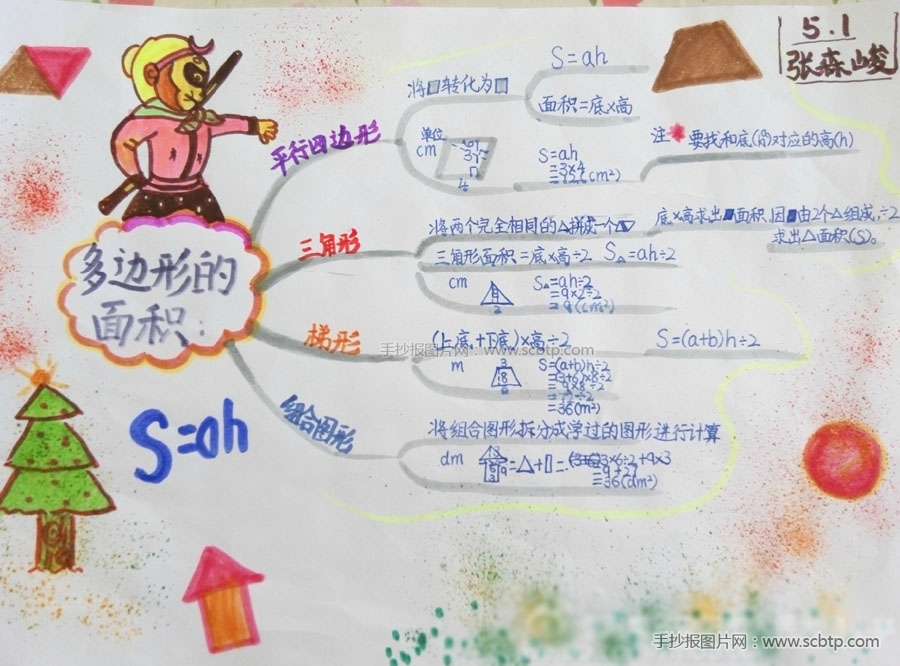 5.1
张森峻
多边形的
面积:
S=ah
平行四边形
将转化为
S=ah
面积=底×高
单位
cm
3
4
S=ah
=3×4
注 要找和底(a)对应的高(h)
三角形
将两个完全相同的△拼成一个
底×高求出面积,因由2个△组成,÷2
求出△面积(S)。
三角形面积=底×高÷2 S△=ah÷2
cm
2
S△=ah÷2
=9×2÷2
=9(cm²)
梯形
(上底+下底)×高÷2
S=(a+b)h÷2
m
3
8
6
S=(a+b)h÷2
=(3+6)×8÷2
=9×8÷2
=36(m²)
组合图形
将组合图形拆分成学过的图形进行计算
dm
=△+▯=
3×6÷2+9×3
=9+27
=36(dm²)
手抄报图片网:www.scbtp.com
手抄报图片网:www.scbtp.com